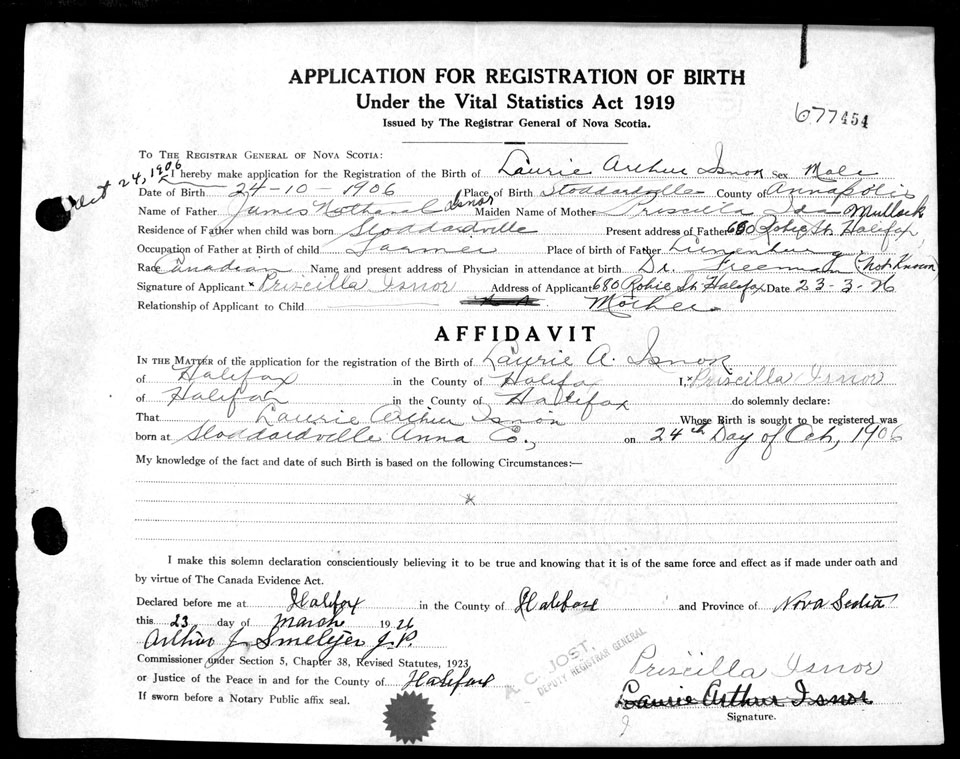 APPLICATION FOR REGISTRATION OF BIRTH
Under the Vital Statistics Act 1919
Issued by The Registrar General of Nova Scotia.
677454
TO THE REGISTRAR GENERAL OF NOVA SCOTIA:
24, 1906
I hereby make application for the Registration of the Birth of Laurie Arthur Isnor Sex Male
Date of Birth 24-10-1906 Place of Birth Stoddardville County of Annapolis
Name of Father James Nathanel Isnor Maiden Name of Mother Priscilla Ida Mullock
Residence of Father when child was born Stoddardville Present address of Father 680 Robie St. Halifax
Occupation of Father at Birth of child Farmer Place of birth of Father Lunenburg
Race Canadian Name and present address of Physician in attendance at birth Dr. Freeman (Not Known)
Signature of Applicant x Priscilla Isnor Address of Applicant 680 Robie St. Halifax Date 23-3-26
Relationship of Applicant to Child Mother
AFFIDAVIT
IN THE MATTER of the application for the registration of the Birth of Laurie A. Isnor
of Halifax in the County of Halifax I, x Priscilla Isnor
of Halifax in the County of Halifax do solemnly declare:
That Laurie Arthur Isnor Whose Birth is sought to be registered was
born at Stoddardville Anna Co., on 24th Day of Oct, 1906
My knowledge of the fact and date of such Birth is based on the following Circumstances:—
x
I make this solemn declaration conscientiously believing it to be true and knowing that it is of the same force and effect as if made under oath and
by virtue of The Canada Evidence Act.
Declared before me at Halifax in the County of Halifax and Province of Nova Scotia
this 23 day of March 1926
Arthur J. Smeltzer J.P.
Commissioner under Section 5, Chapter 38, Revised Statutes, 1923
or Justice of the Peace in and for the County of Halifax
If sworn before a Notary Public affix seal.
A. C. JOST,
DEPUTY REGISTRAR GENERAL
Priscilla Isnor
Laurie Arthur Isnor
Signature.